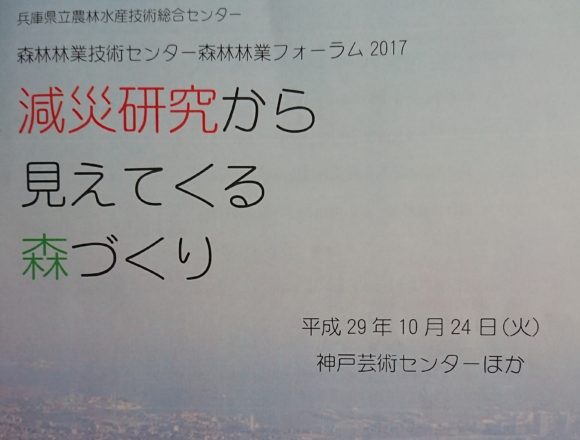 兵庫県立農林水産技術総合センター
森林林業技術センター森林林業フォーラム 2017
減災研究から
見えてくる
森づくり
平成 29 年 10 月 24 日(火)
神戸芸術センターほか